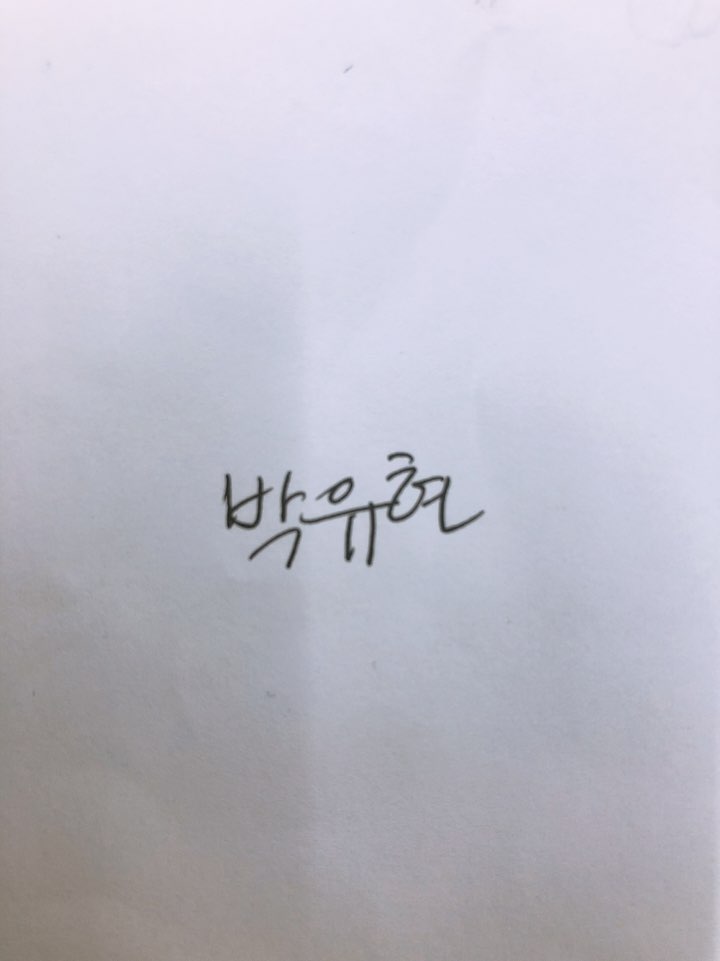 박유현